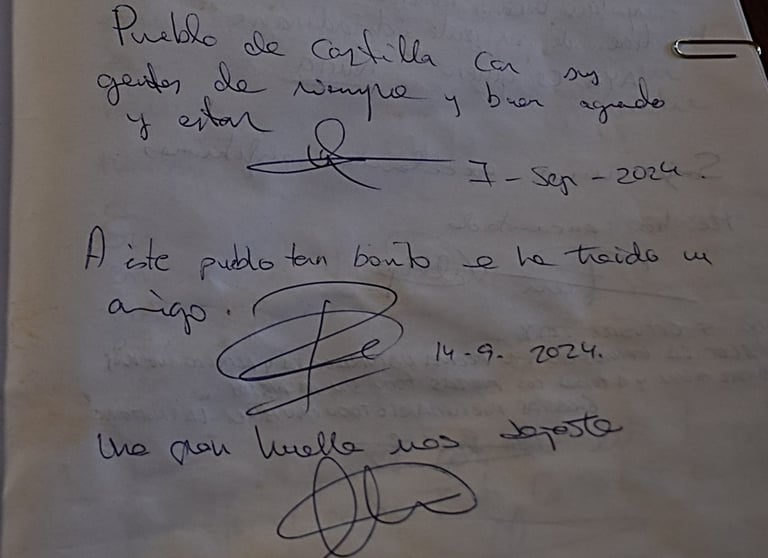 Pueblo de Castilla con sus
gentes de siempre y buen agrado
y estar
7 - Sep - 2024.
A este pueblo tan bonito e ha traido un
amigo.
14-9. 2024.
Una gran huella nos dejaste